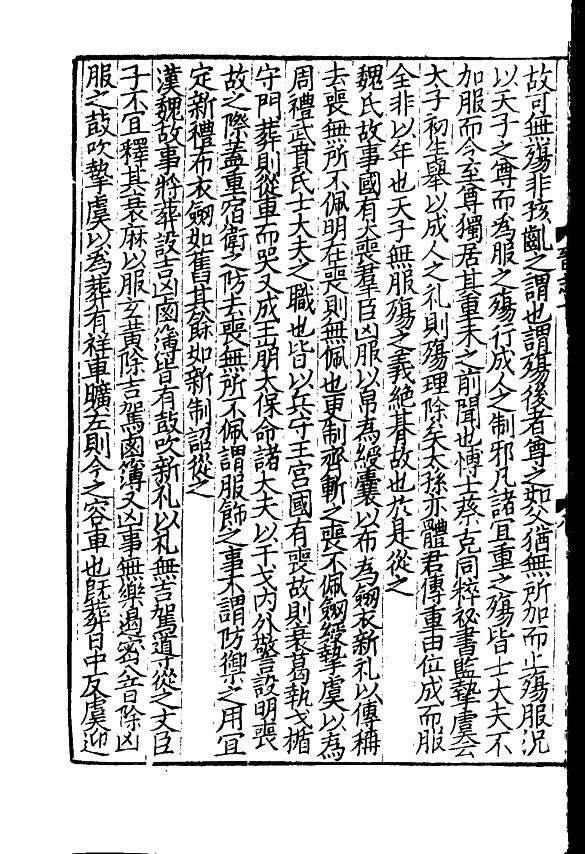 故可無殤非孩齓之謂也謂殤後者尊之如父猶無所加而止殤服況
以天子之尊而為服之殤行成人之制邪凡諸宜重之殤皆士大夫不
加服而今至尊獨居其重未之前聞也愽士蔡克同粹秘書監摯虞云
大子初生舉以成人之礼則殤理除矣太孫亦體君傳重由位成而服
全非以年也天子無服殤之義絶朞故也於是從之
魏氏故事國有大喪羣臣凶服以帛為綬囊以布為劒衣新礼以傳稱
去喪無所不佩明在喪則無佩也更制齊斬之喪不佩劒綬摯虞以為
周禮武賁氏士大夫之職也皆以兵守王宮國有喪故則衰葛執戈楯
守門葬則從車而哭又成王崩太保命諸大夫以干戈内外警設明喪
故之際蓋重宿衛之防去喪無所不佩謂服飾之事不謂防禦之用宜
定新禮布衣劒如舊其餘如新制詔從之
漢魏故事將葬設吉凶鹵簿皆有鼓吹新礼以礼無吉駕導從之文臣
子不宜釋其衰麻以服玄黄除吉駕鹵簿又凶事無樂遏密八音除凶
服之鼓吹摯虞以為葬有祥車曠左則今之容車也旣葬日中反虞迎